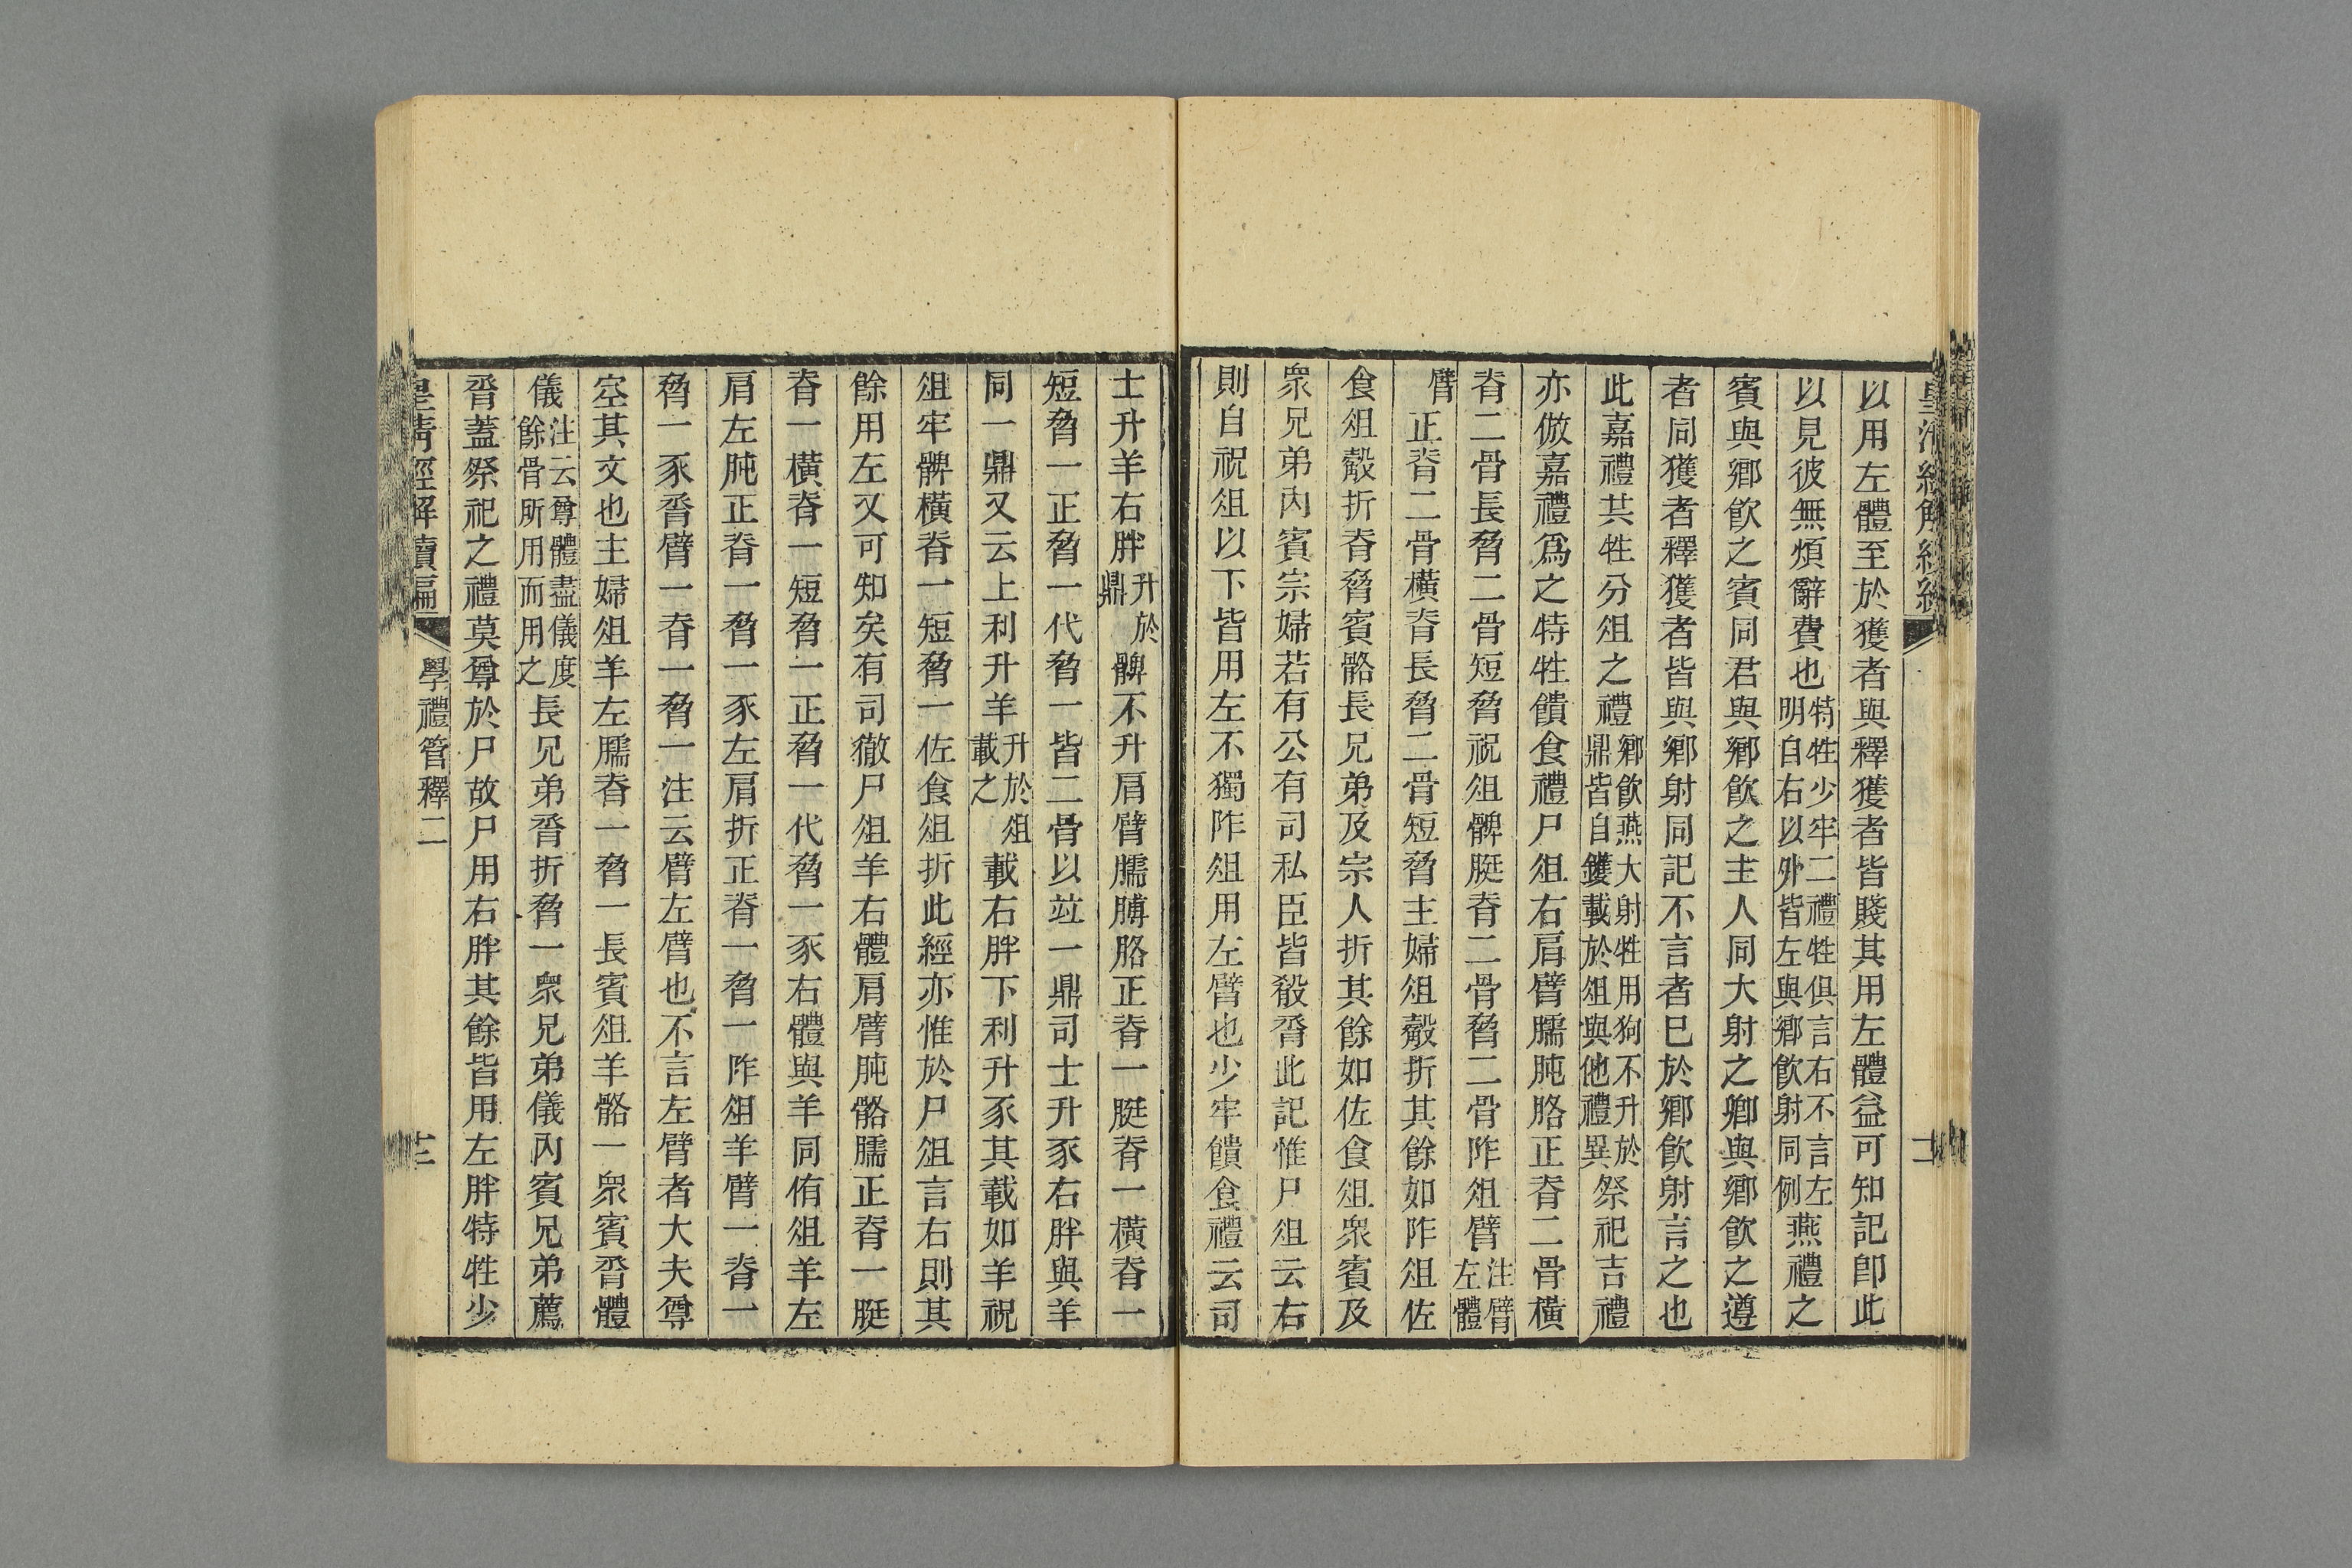 以用左體至於獲者與釋獲者皆賤其用左體益可知記卽此
以見彼無煩辭費也特牲少牢二禮牲俱言右不言左明自右以外皆左與鄉飮射同例燕禮之
賓與鄉飮之賓同君與鄉飮之主人同大射之卿與鄉飮之遵
者同獲者釋獲者皆與鄉射同記不言者已於鄉飮射言之也
此嘉禮共牲分俎之禮鄉飮燕大射牲用狗不升於鼎皆自鑊載於俎與他禮異祭祀吉禮
亦倣嘉禮爲之特牲饋食禮尸俎右肩臂臑肫胳正脊二骨橫
脊二骨長脅二骨短脅祝俎髀脡脊二骨脅二骨阼俎臂注臂左體
臂正脊二骨橫脊長脅二骨短脅主婦俎觳折其餘如阼俎佐
食俎觳折脊脅賓骼長兄弟及宗人折其餘如佐食俎衆賓及
衆兄弟內賓宗婦若有公有司私臣皆殽脀此記惟尸俎云右
則自祝俎以下皆用左不獨阼俎用左臂也少牢饋食禮云司
士升羊右胖升於鼎髀不升肩臂臑膊胳正脊一脡脊一橫脊一
短脅一正脅一代脅一皆二骨以竝一鼎司士升豕右胖與羊
同一鼎又云上利升羊升於俎載之載右胖下利升豕其載如羊祝
俎牢髀橫脊一短脅一佐食俎折此經亦惟於尸俎言右則其
餘用左又可知矣有司徹尸俎羊右體肩臂肫骼臑正脊一脡
脊一橫脊一短脅一正脅一代脅一豕右體與羊同侑俎羊左
肩左肫正脊一脅一豕左肩折正脊一脅一阼俎羊臂一脊一
脅一豕脀臂一脊一脅一注云臂左臂也不言左臂者大夫尊
空其文也主婦俎羊左臑脊一脅一長賓俎羊骼一衆賓脀體
儀注云尊體盡儀度餘骨所用而用之長兄弟脀折脅一衆兄弟儀內賓兄弟薦
脀蓋祭祀之禮莫尊於尸故尸用右胖其餘皆用左胖特牲少
皇清經解續編 學禮管釋二